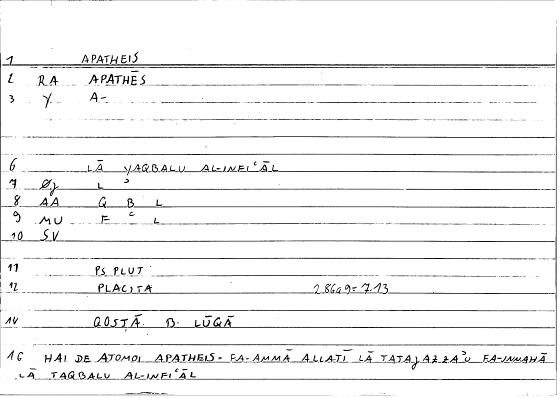 1 APATHEIS
2 RA APATHĒS
3 Y A-
6 LĀ YAQBALU AL-INFIʿĀL
7 Øj L ʾ
8 AA Q B L
9 MU F ʿ L
10 SV
11 PS PLUT
12 PLACITA 286a9=7.13
14 QOSṬĀ B. LŪQĀ
16 HAI DE ATOMOI APATHEIS - FA-AMMĀ ALLATĪ LĀ TATAJAZZAʾU FA-INNAHĀ
LĀ TAQBALU AL-INFIʿĀL